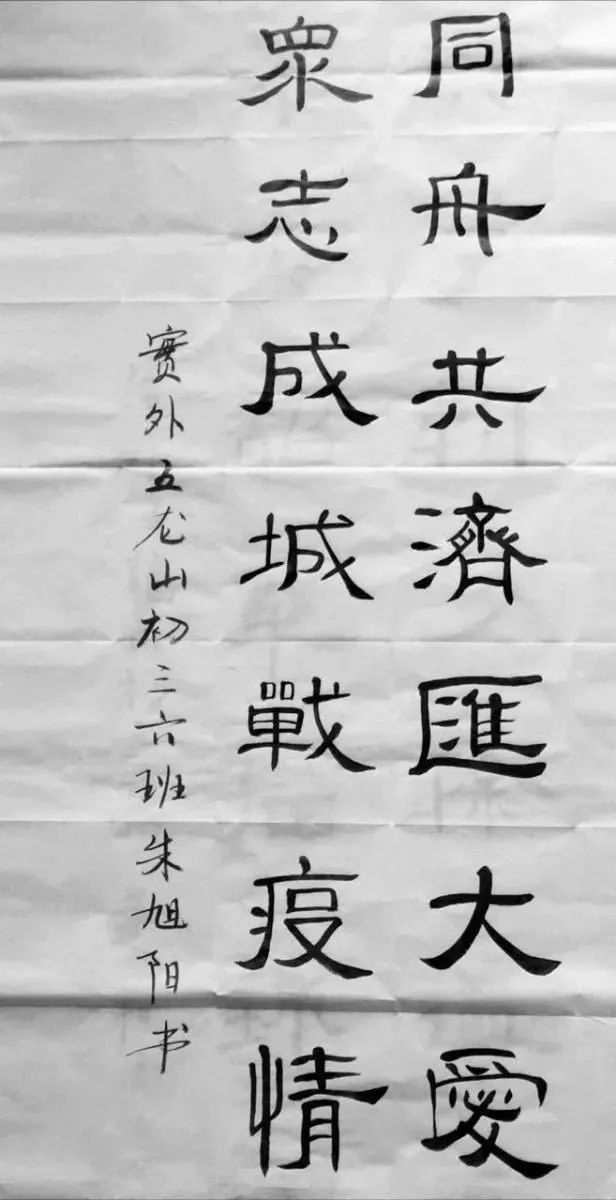 同舟共濟匯大愛
眾志成城戰疫情
實外五龙山初三六班朱旭阳书